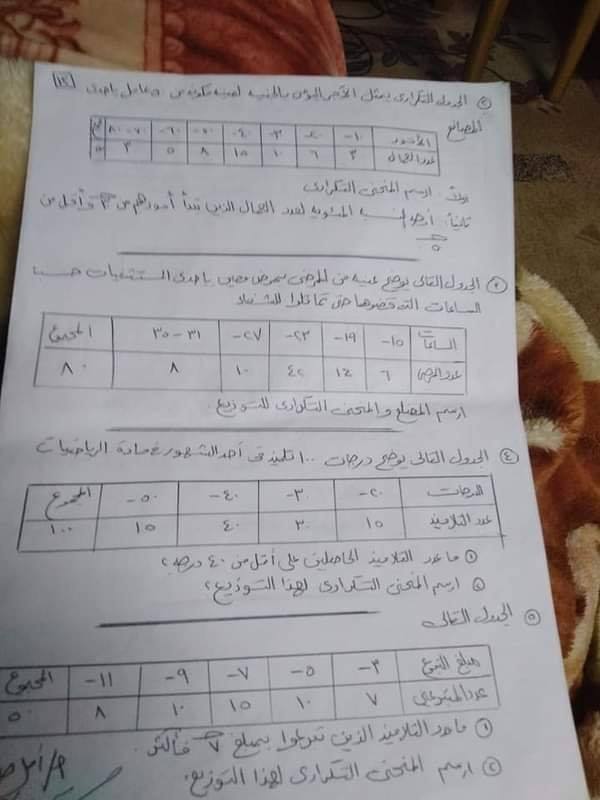 ② الجدول التكرارى يمثل الأجر اليومى بالجنيه لعينه مكونه من ٥٠ عامل بإحدى
المصانع
الأجور ١٠- ٢٠- ٣٠- ٤٠- ٥٠- ٦٠- ٧٠-٨٠
عدد العمال ٣ ٦ ١٠ ١٥ ٨ ٥ ٣
أولاً: ارسم المنحنى التكرارى
ثانياً: أوجد النسبه المئويه لعدد العمال الذين تبدأ أجورهم من وأقل من
الجدول التالى يوضح عينه من المرضى بمرض معين بإحدى المستشفيات حسب
الساعات التى قضوها حتى تماثلوا للشفاء
الساعات ١٥- ١٩- ٢٣- ٢٧- ٣١-٣٥ المجموع
عدد المرضى ٦ ١٤ ٤٢ ١٠ ٨ ٨٠
ارسم المضلع والمنحنى التكرارى للتوزيع.
④ الجدول التالى يوضح درجات ١٠٠ تلميذ فى أحد الشهور فى مادة الرياضيات
الدرجات ٢٠- ٣٠- ٤٠- ٥٠- المجموع
عدد التلاميذ ١٥ ٣٠ ٤٠ ١٥ ١٠٠
① ما عدد التلاميذ الحاصلين على أقل من ٤٠ درجه؟
② ارسم المنحنى التكرارى لهذا التوزيع؟
⑤ الجدول التالى
مبلغ التبرع ٣- ٥- ٧- ٩- ١١- المجموع
عدد المتبرعين ٧ ١٠ ١٥ ١٠ ٨ ٥٠
① ما عدد التلاميذ الذين تبرعوا بمبلغ ٧ فأكثر.
② ارسم المنحنى التكرارى لهذا التوزيع.